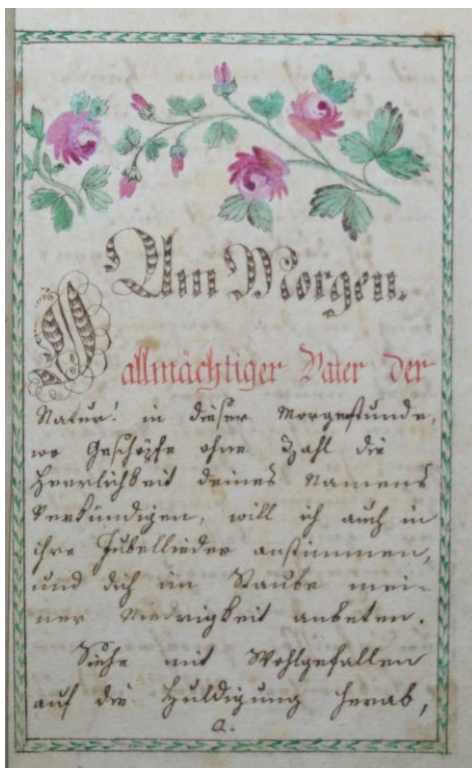 Am Morgen.
O
allmächtiger Vater der
Natur! in dieser Morgestunde,
wo Geschöpfe ohne Zahl die
Herrlichkeit deines Namens
verkündigen, will ich auch in
ihre Jubellieder anstimmen,
und dich im Staube mei-
ner Niedrigkeit anbeten.
Siehe mit Wohlgefallen
auf die Huldigung herab,
a.